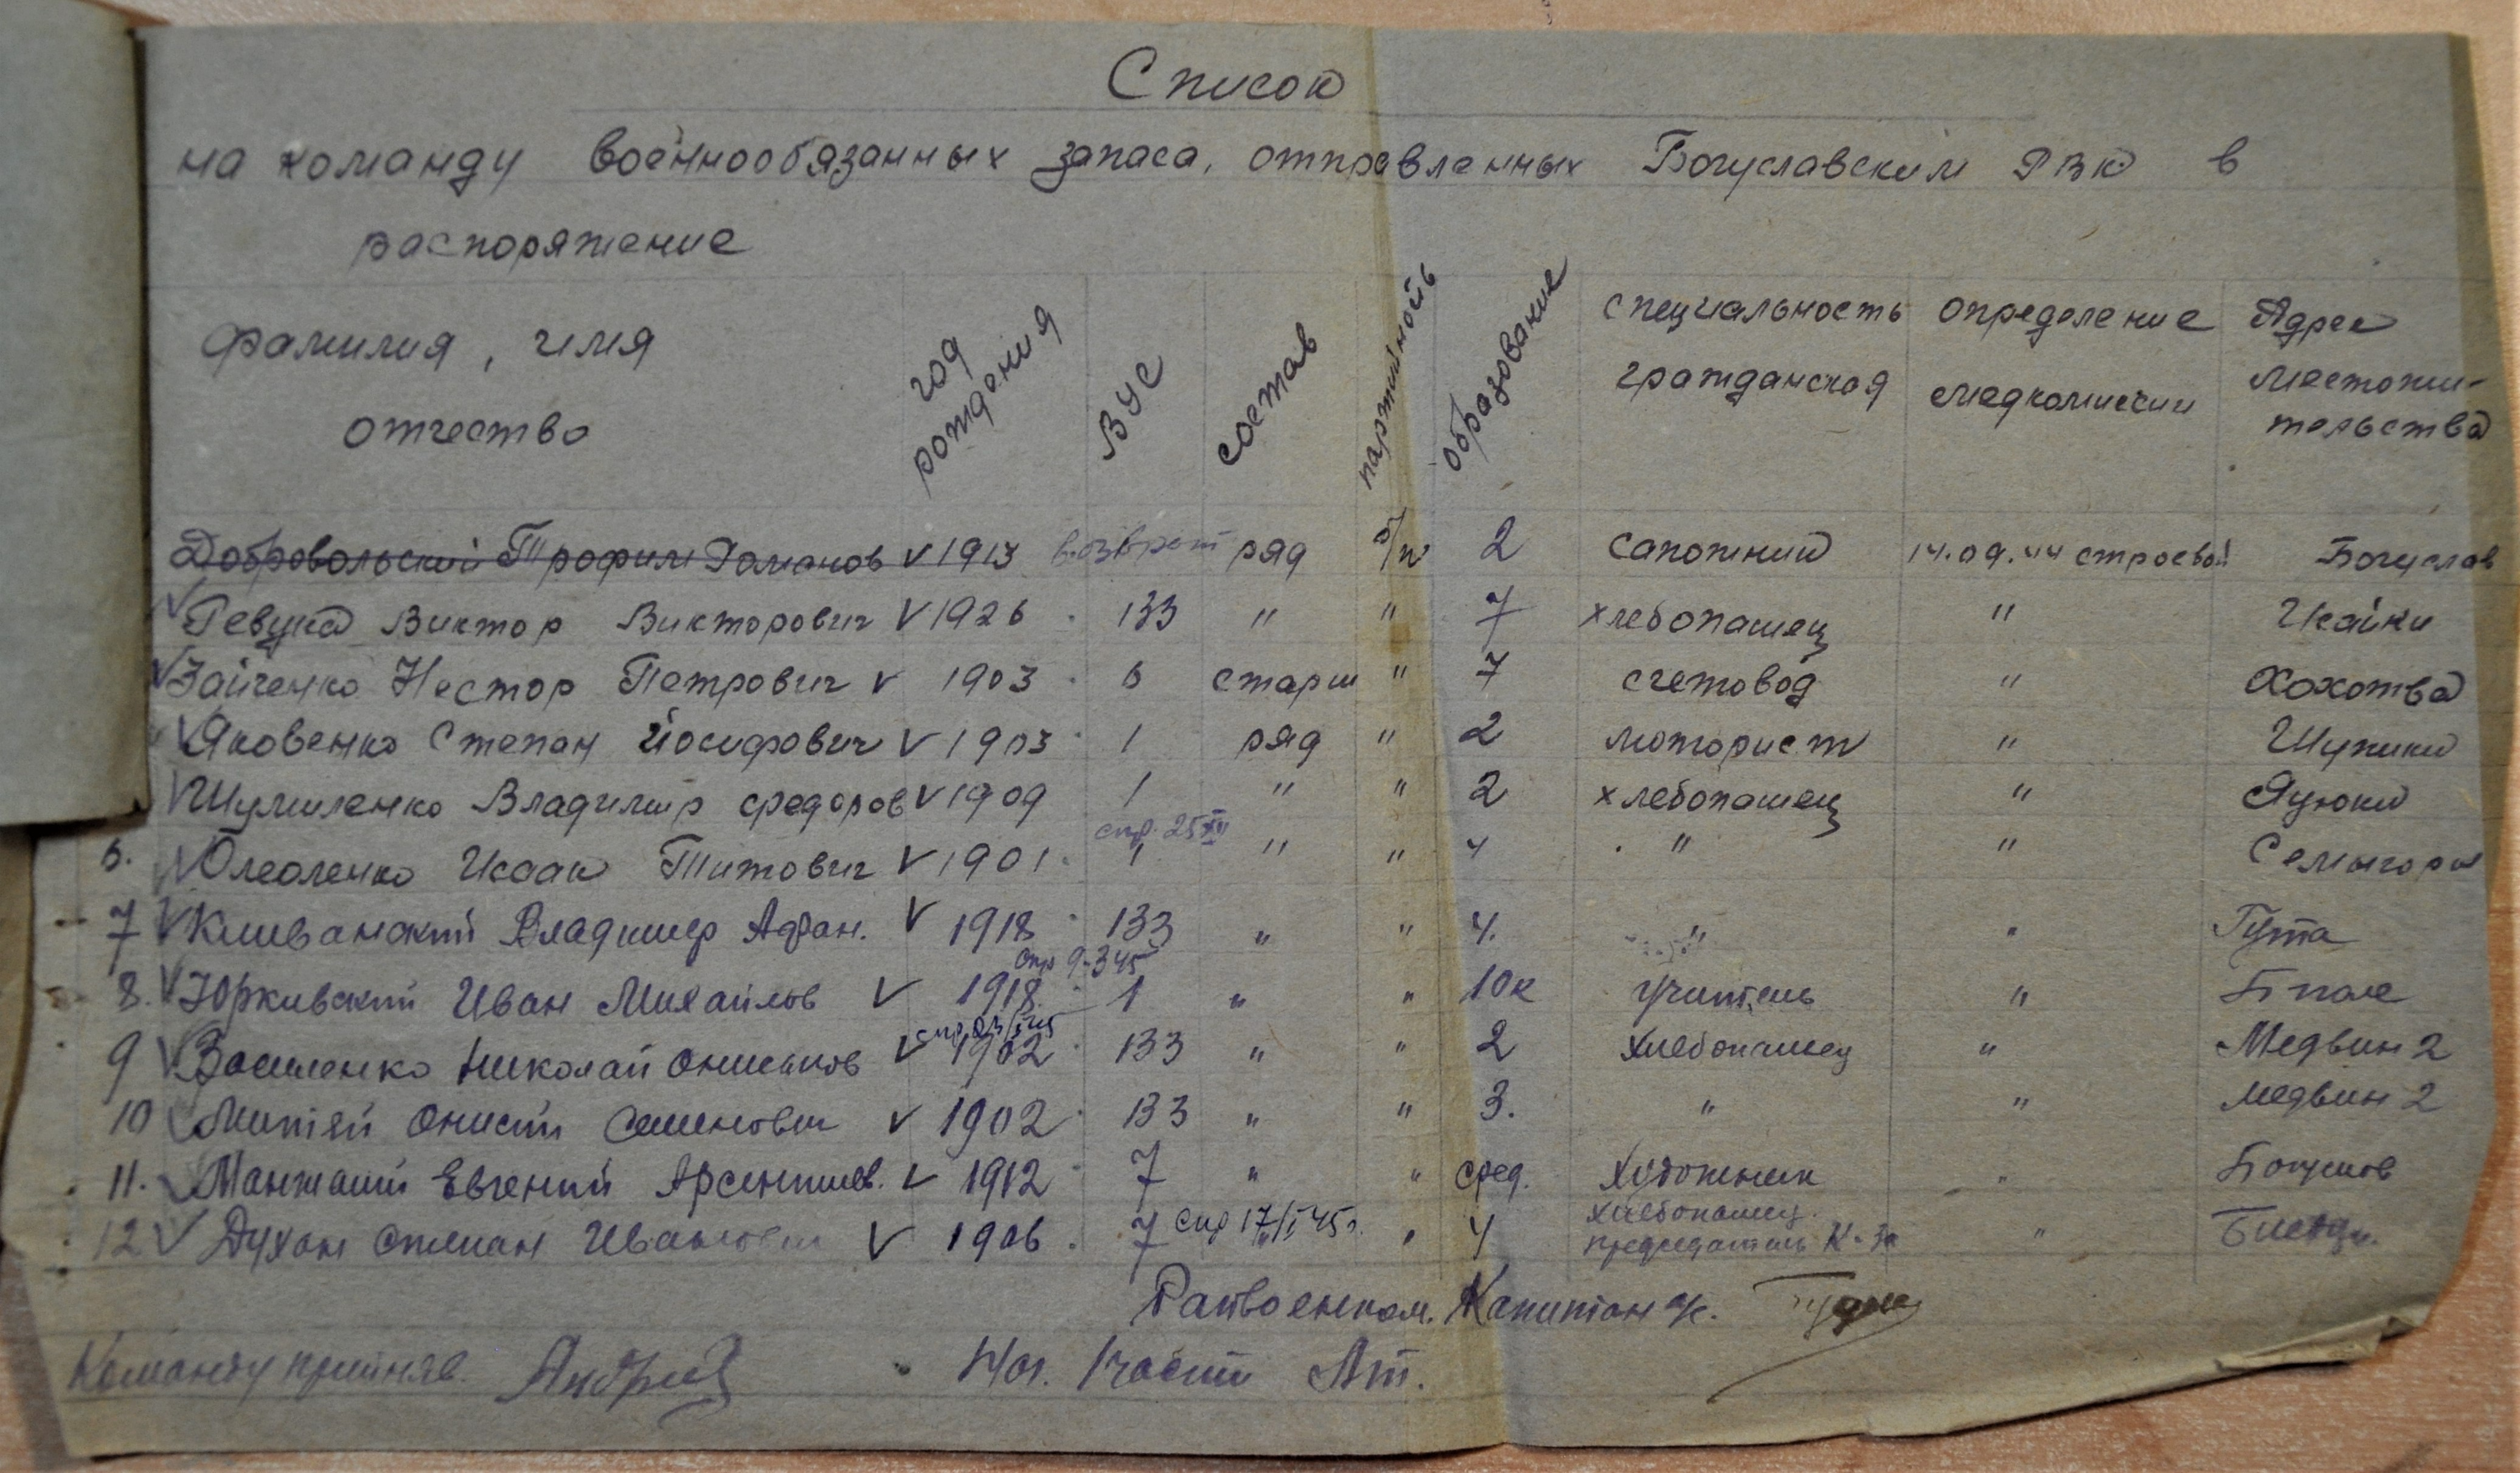 Список
на команду военнообязанных запаса, отправленных Богуславским РВК в
распоряжение
фамилия, имя отчество год рождения ВУС состав партийность образование специальность гражданская определение медкомиссии Адрес местожительства
Добровольский Трофим Романов V 1913 возврат ряд б/п 2 сапожник 14.09.44 строевой Богуслав
V Гевука Виктор Викторович V 1926 133 " " 7 хлебопашец " Исайки
V Зайченко Нестор Петрович V 1903 6 старш " 7 счетовод " Хохотва
V Яковенко Степан Йосифович V 1903 1 ряд " 2 моторист " Шупики
V Шумиленко Владимир Федоров V 1909 1 " " 2 хлебопашец " Яцюки
спр. 25 XII
6. V Исаак Титович V 1901 1 " " 4 " " Семыгоры
7 V Владимир Афан. V 1918 133 " " 4. " " Гута
спр 9-3 45
8. V Юркивский Иван Михайлов V 1918 1 " " 10к учитель " Б поле
9 V Василенко Николай V 1902 133 " " 2 хлебопашец " Медвин 2
10 V Онисий Семенович V 1902 133 " " 3. " " Медвин 2
11. V Евгений V 1912 7 " " сред. Художник " Богуслав
12 V Духан Степан Иванович V 1906 7 спр 17/I 45г. " " 4 хлебопашец. председатель К-за "
Райвоенком. Капитан а/с.
Команду принял Нач. 1 части Лт.